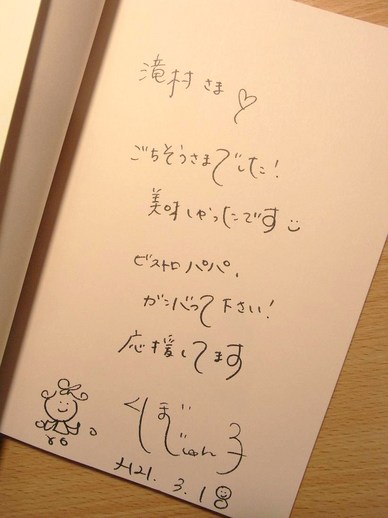 滝村さま♡
ごちそうさまでした!
美味しかったです
ビストロパパ、
ガンバって下さい!
応援してます
くぼ
じゅん子
H21. 3. 18